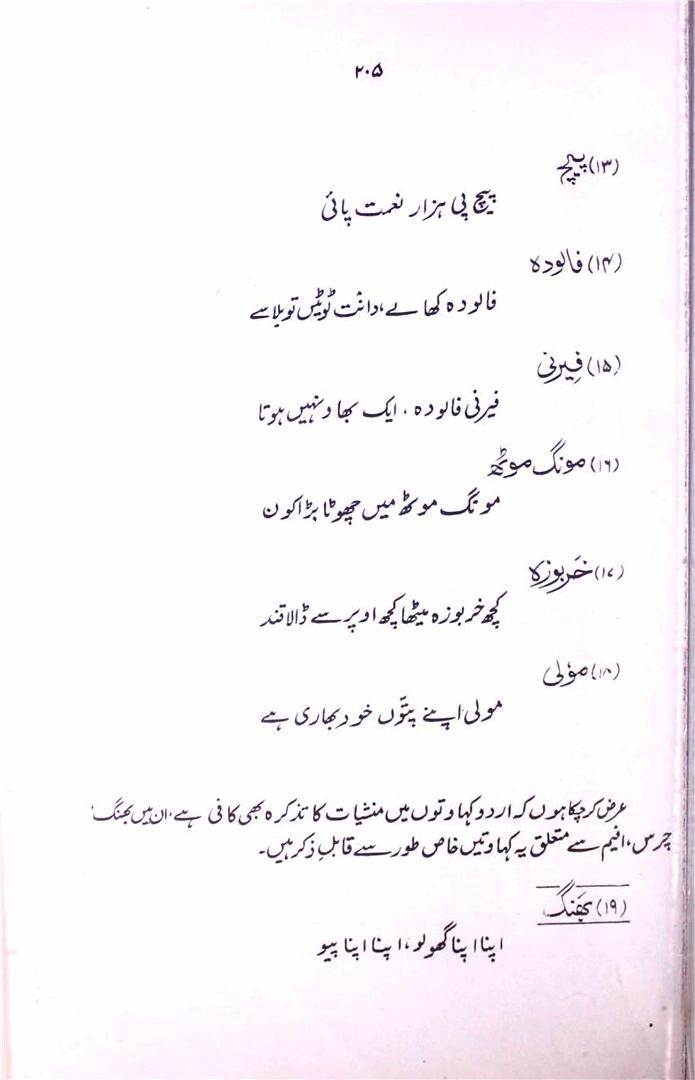 ۲۰۵
(۱۳) پیچ
پیچ پی ہزار نعمت پائی
(۱۴) فالودہ
فالودہ کھاے، دانت ٹوٹیں تو بلا سے
(۱۵) فِیرنی
فیرنی فالودہ، ایک بھاؤ نہیں ہوتا
(۱۶) مونگ موٹھ
مونگ موٹھ میں چھوٹا بڑا کون
(۱۷) خَربوزہ
کچھ خربوزہ میٹھا کچھ اوپر سے ڈالا قند
(۱۸) مولی
مولی اپنے پتّوں خود بھاری ہے
عرض کر چکا ہوں کہ اردو کہاوتوں میں منشیات کا تذکرہ بھی کافی ہے، ان میں بھنگ،
چرس، افیم سے متعلق یہ کہاوتیں خاص طور سے قابلِ ذکر ہیں۔
(۱۹) بھَنگ
اپنا اپنا گھولو، اپنا اپنا پیو